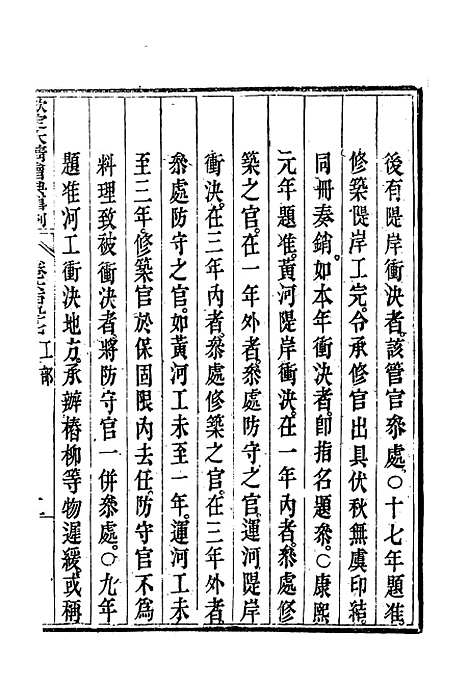 後有隄岸衝決者。該管官叅處。○十七年題准。
修築隄岸工完。令承修官出具伏秋無虞印結。
同冊奏銷。如本年衝決者。卽指名題叅。○康熙
元年題准。黃河隄岸衝決。在一年內者。叅處修
築之官。在一年外者。叅處防守之官。運河隄岸
衝決。在三年內者。叅處修築之官。在三年外者
叅處防守之官。如黃河工未至一年。運河工未
至三年。修築官於保固限內去任。防守官不爲
料理致被衝決者。將防守官一併叅處。○九年
題准。河工衝決地方。承辦椿柳等物遲緩。或稱
欽定大淸會典事例 工部